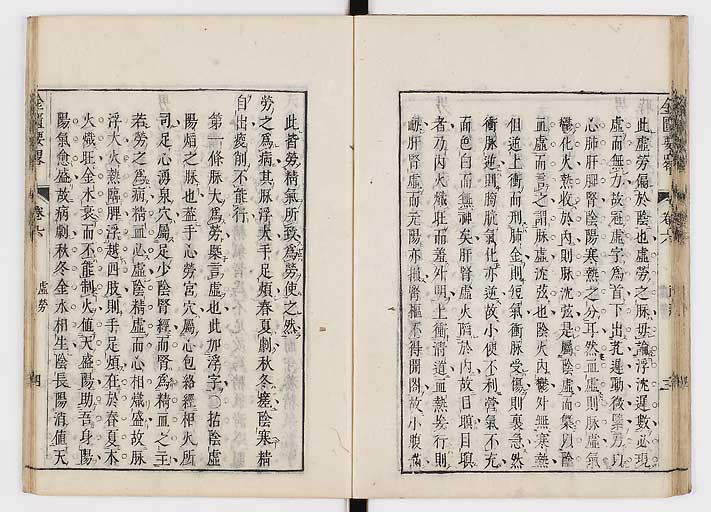 此虛勞偏於陰也虛勞之脉毋論浮沈遲數必現
虛而無力故冠虛字爲首下出芤遲動微緊乃
心肺肝脾腎陰陽寒熱之分耳然血虛則脉虛氣
鬱化火熱收於內則脉沈弦是屬陰虛而氣
血虛而言之謂脉虛沈弦也陰火內鬱外無寒熱
但逆上衝而刑肺金則短氣衝脉受傷則裏急然
衝脉逆則膀胱氣化亦逆故小便不利營氣不充
面色白而無神矣肝腎虛火陷於內故目瞑
者乃內火熾旺而差外明上衝清道血熱妄行則
衄肝腎虛而元陽亦微腎樞不得開闔故小腹滿
金匱要畧
卷六
三
此皆勞精氣所致爲勞使之然
勞之爲病其脉浮大手足煩春夏劇秋冬瘥陰寒精
自出痠削不能行
第一條脉大爲勞槩言虛也此加浮字〇指陰虛
陽熾之脉也蓋手心勞宮穴屬心包絡經相火所
司足心湧泉穴屬足少陰腎經而腎爲精血之主
若勞之爲病精血必虛陰精虛而心相熾盛故脉
浮大火熱臨脾浮越四肢則手足煩在於春夏木
火熾旺金水衰而不能制火値天盛陽助吾身陽
陽氣愈盛故病劇秋冬金水相生陰長陽消値天
金匱要畧
卷六
虛勞
四